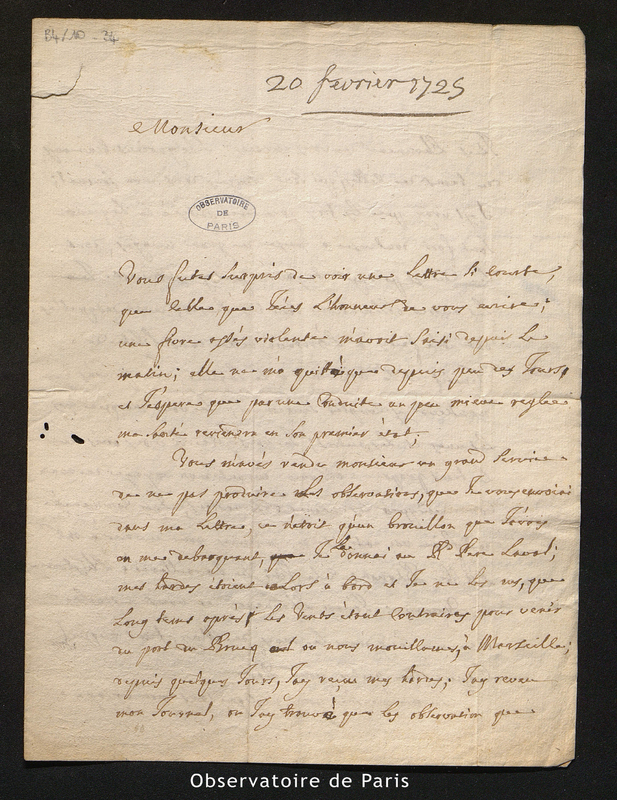 B4/10-34
20 fevrier 1725
Monsieur
OBSERVATOIRE
DE
PARIS
Vous futes surpris de voir une lettre si courte,
que celle que j'eus l'honneur de vous ecrire;
une fievre assés violente m'avoit saisi depuis le
matin; elle ne m'a quitté que depuis peu des jours,
et j'espere que par une conduite un peu mieux reglee
ma santé reviendra en son premier état,
Vous m'avés rendu monsieur un grand service
de ne pas produire les observations, que je vous envoiai
dans ma lettre, ce n'etoit qu'un brouillon que j'avois
en me debarquant, je le donnai au Pere Laval;
mes hardes étoient alors à bord et je ne les eus, que
long tems après les vents étant contraires pour venir
du port du Brusq ou nous mouillames, à Marseille;
depuis quelques jours, j'ay recu mes hardes, j'ay reveu
mon journal, ou j'ay trouvé que les observation que
Observatoire de Paris